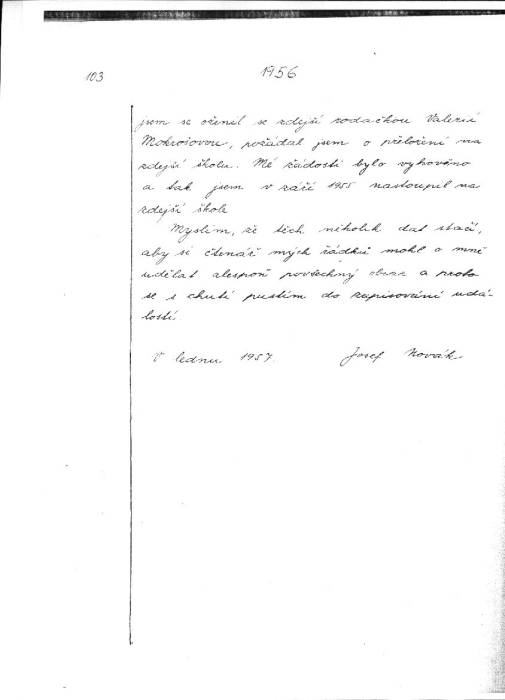 103
1956
jsem se oženil se zdejší rodačkou Valerií
Mokrošovou, požádal jsem o přeložení na
zdejší školu. Mé žádosti bylo vyhověno
a tak jsem v září 1955 nastoupil na
zdejší škole
Myslím, že těch několik dat stačí,
aby si čtenář mých řádků mohl o mně
udělat alespoň povšechný obraz a proto
se s chutí pustím do zapisování udá-
lostí.
V lednu 1957 Josef Novák